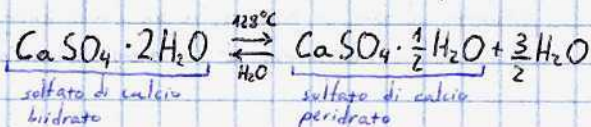 CaSO₄ · 2H₂O ⇌ CaSO₄ · ½ H₂O + 3/2 H₂O
128°C
H₂O
solfato di calcio
biidrato
solfato di calcio
peridrato